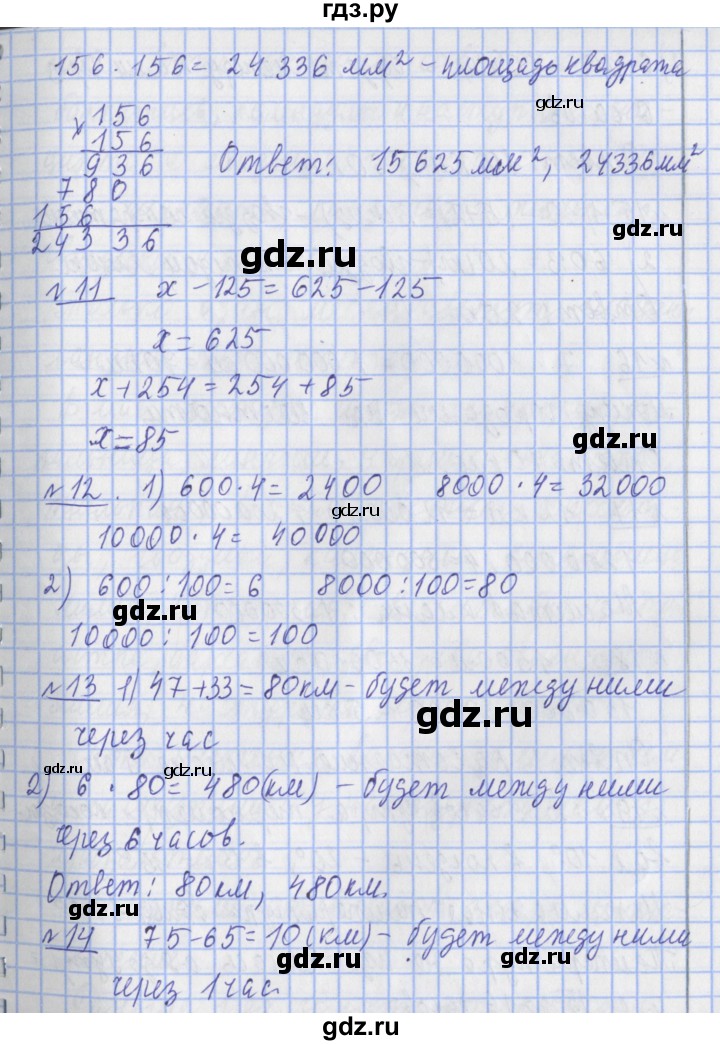 гдз.ру
156 · 156 = 24 336 мм² - площадь квадрата
gdz.ru
156
× 156
936 Ответ: 15 625 мм², 24336 мм²
780
156 gdz.ru
24336 gdz.ru
№ 11 x - 125 = 625 - 125
x = 625
x + 254 = 254 + 85
x = 85 gdz.ru
№ 12. 1) 600 · 4 = 2400 8000 · 4 = 32000
gdz.ru
10000 · 4 = 40000
2) 600 : 100 = 6 8000 : 100 = 80
gdz.ru
10000 : 100 = 100
№ 13 1) 47 + 33 = 80 км - будет между ними
gdz.ru
через час
gdz.ru gdz.ru
2) 6 · 80 = 480 (км) - будет между ними
через 6 часов.
Ответ: 80 км, 480 км.
gdz.ru
№ 14 75 - 65 = 10 (км) - будет между ними
gdz.ru gdz.ru
через 1 час.
gdz.ru